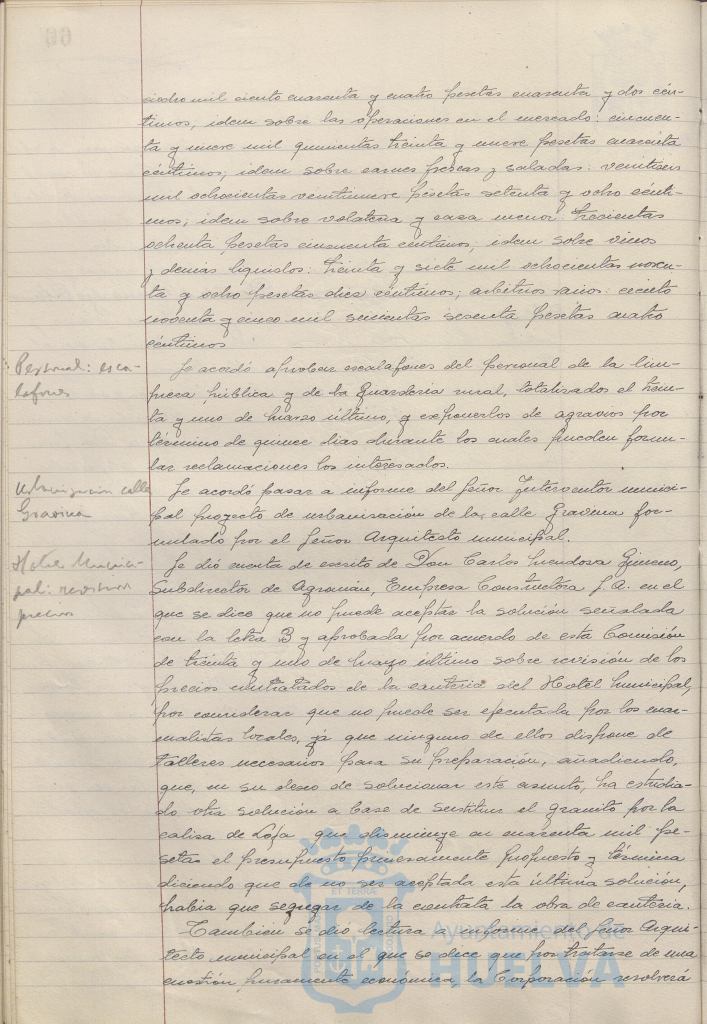 cuatro mil ciento cuarenta y cuatro pesetas cuarenta y dos cén-
timos, idem sobre las operaciones en el mercado: cincuen-
ta y nueve mil quinientas treinta y nueve pesetas cuarenta
céntimos; idem sobre carnes frescas y saladas: veintiseis
mil ochocientas veintinueve pesetas setenta y ocho cénti-
mos; idem sobre volateria y caza menor trescientas
ochenta pesetas cincuenta centimos; idem sobre vinos
y demás liquidos: treinta y siete mil ochocientas noven-
ta y ocho pesetas diez céntimos; arbitrios varios: ciento
noventa y cinco mil seiscientas sesenta pesetas cuatro
céntimos
Personal: esca-
lafones
Se acordó aprobar escalafones del personal de la lim-
pieza pública y de la Guarderia rural, totalizados el trein-
ta y uno de marzo último, y exponerlos de agravios por
término de quince dias durante los cuales pueden formu-
lar reclamaciones los interesados.
Urbanización calle
Gravina
Se acordó pasar a informe del Señor Interventor munici-
pal proyecto de urbanización de la calle Gravina for-
mulado por el Señor Arquitecto municipal.
Hotel Munici-
pal: revision
precios
Se dió cuenta de escrito de Don Carlos Mendoza Gimeno,
Subdirector de Agroman, Empresa Constructora S.A. en el
que se dice que no puede aceptar la solución señalada
con la letra B y aprobada por acuerdo de esta Comisión
de treinta y uno de marzo último sobre revisión de los
precios contratados de la canteria del Hotel Municipal,
por considerar que no puede ser ejecutada por los mar-
molistas locales, ya que ninguno de ellos dispone de
talleres necesarios para su preparación, añadiendo,
que, en su deseo de solucionar este asunto, ha estudia-
do otra solución a base de sustituir el granito por la
caliza de Loja que disminuye en cuarenta mil pe-
setas el presupuesto primeramente propuesto y termina
diciendo que de no ser aceptada esta última solución,
habia que segregar de la contrata la obra de canteria.
Tambien se dio lectura a informe del Señor Arqui-
tecto municipal en el que se dice que por tratarse de una
cuestión puramente económica, la Corporación resolverá
Ayuntamiento de
HUELVA